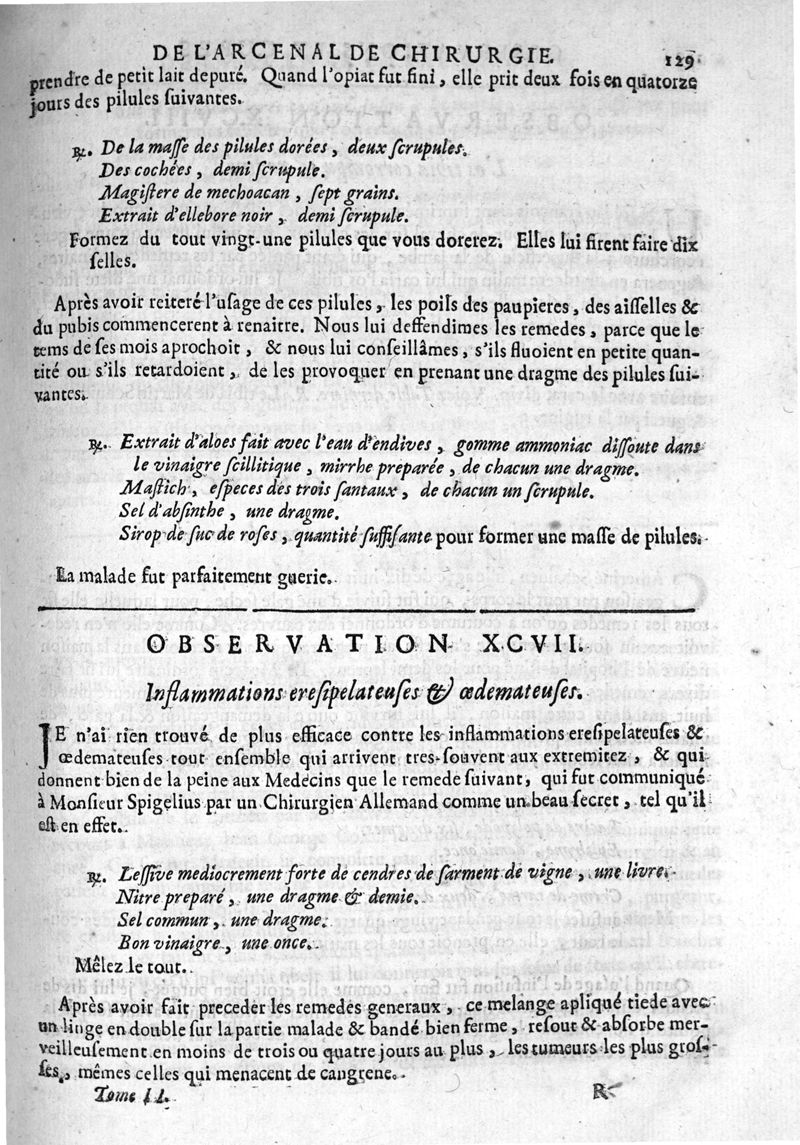 DE L'ARCENAL DE CHIRURGIE. 129
prendre de petit lait depuré. Quand l'opiat fut fini, elle prit deux fois en quatorze
jours des pilules suivantes.
℞. De la masse des pilules dorées, deux scrupules.
Des cochées, demi scrupule.
Magistere de mechoacan, sept grains.
Extrait d'ellebore noir, demi scrupule.
Formez du tout vingt-une pilules que vous dorerez. Elles lui firent faire dix
selles.
Après avoir reiteré l'usage de ces pilules, les poils des paupieres, des aisselles &
du pubis commencerent à renaitre. Nous lui deffendimes les remedes, parce que le
tems de ses mois aprochoit, & nous lui conseillâmes, s'ils fluoient en petite quan-
tité ou s'ils retardoient, de les provoquer en prenant une dragme des pilules sui-
vantes.
℞. Extrait d'aloes fait avec l'eau d'endives, gomme ammoniac dissoute dans
le vinaigre scillitique, mirrhe preparée, de chacun une dragme.
Mastich, especes des trois santaux, de chacun un scrupule.
Sel d'absinthe, une dragme.
Sirop de suc de roses, quantité suffisante pour former une masse de pilules.
La malade fut parfaitement guerie.
OBSERVATION XCVII.
Inflammations eresipelateuses & œdemateuses.
JE n'ai rien trouvé de plus efficace contre les inflammations eresipelateuses &
œdemateuses tout ensemble qui arrivent tres-souvent aux extremitez, & qui
donnent bien de la peine aux Medecins que le remede suivant, qui fut communiqué
à Monsieur Spigelius par un Chirurgien Allemand comme un beau secret, tel qu'il
est en effet.
℞. Lessive mediocrement forte de cendres de sarment de vigne, une livre.
Nitre preparé, une dragme & demie.
Sel commun, une dragme.
Bon vinaigre, une once.
Mêlez le tout.
Après avoir fait preceder les remedes generaux, ce melange apliqué tiede avec
un linge en double sur la partie malade & bandé bien ferme, resout & absorbe mer-
veilleusement en moins de trois ou quatre jours au plus, les tumeurs les plus gros-
ses, mêmes celles qui menacent de cangrene.
Tome II. R